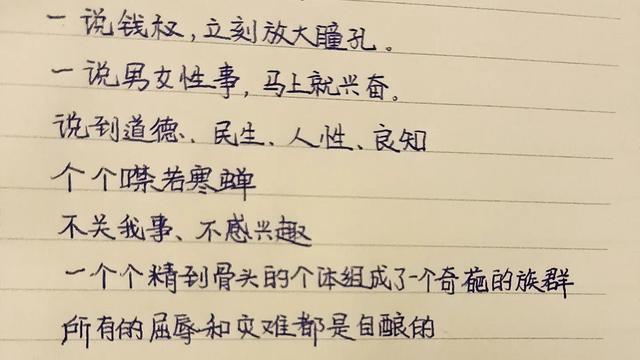 一说钱权,立刻放大瞳孔。
一说男女性事,马上就兴奋。
说到道德、民生、人性、良知
个个噤若寒蝉
不关我事、不感兴趣
一个个精到骨头的个体组成了一个奇葩的族群
所有的屈辱和灾难都是自酿的